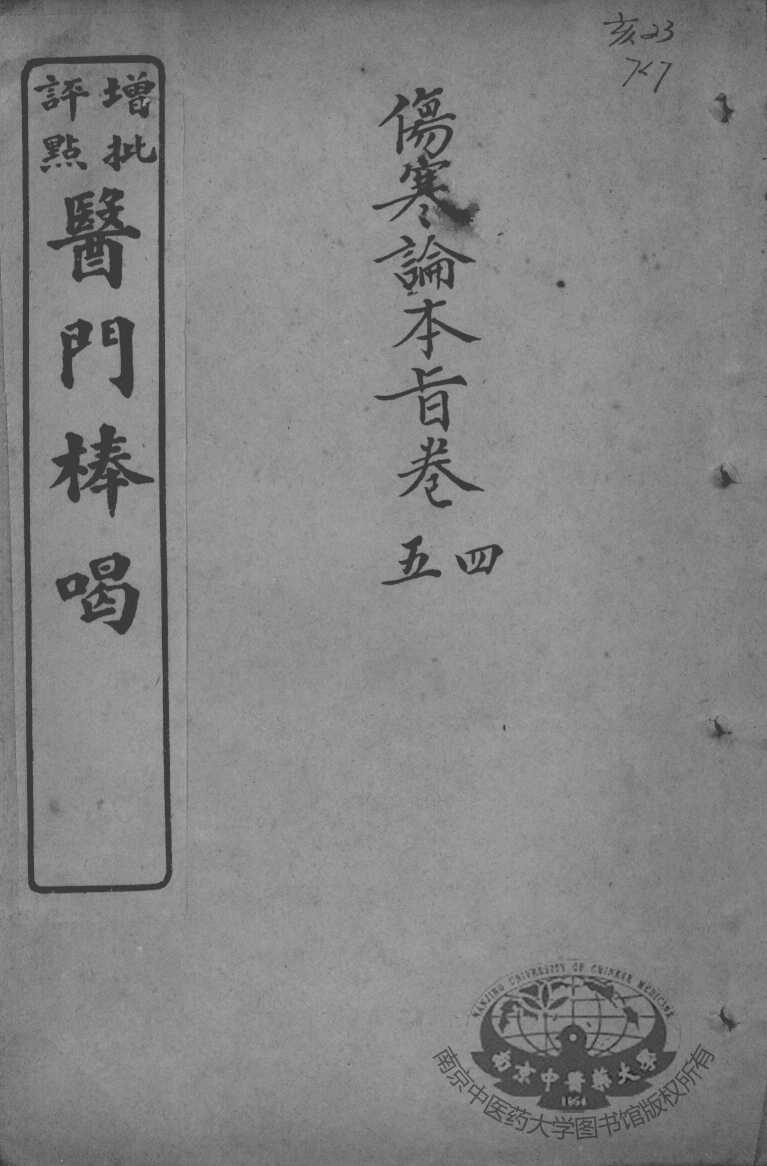 亥23
7<7
傷寒論本旨卷
四
五
增批
評點
醫門棒喝
NANJING UNIVERSITY OF CHINESE MEDICINE
南京中醫藥大學
1954
南京中医药大学图书馆版权所有